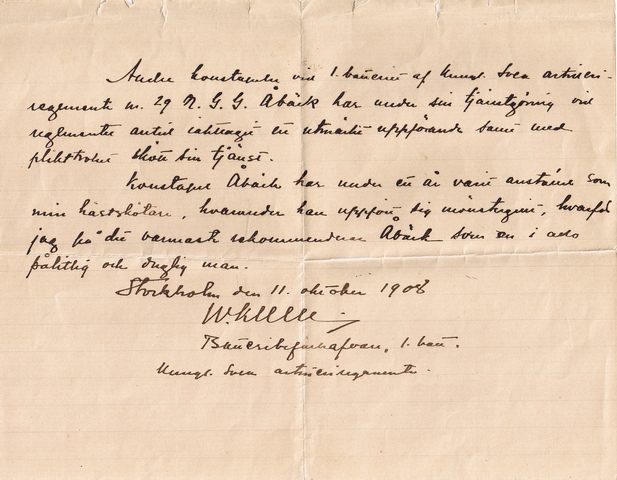 Andre konstapeln vid 1. batteriet af Kungl. Svea artilleri-
regemente nr. 29 N. G. G. Åbäck har under sin tjänstgöring vid
regementet antid iakttagit en utmärkt uppförande samt med
plikttrohet skött sin tjänst.
Konstapel Åbäck har under ett år varit anställd som
min hästskötare, hvarunder han uppfört sig mönstergillt, hvarför
jag på det varmaste rekommenderar Åbäck som en i allo
pålitlig och duglig man.
Stockholm den 11. oktober 1908
Batteribefälhafvare, 1. batt.
Kungl. Svea artilleriregemente.